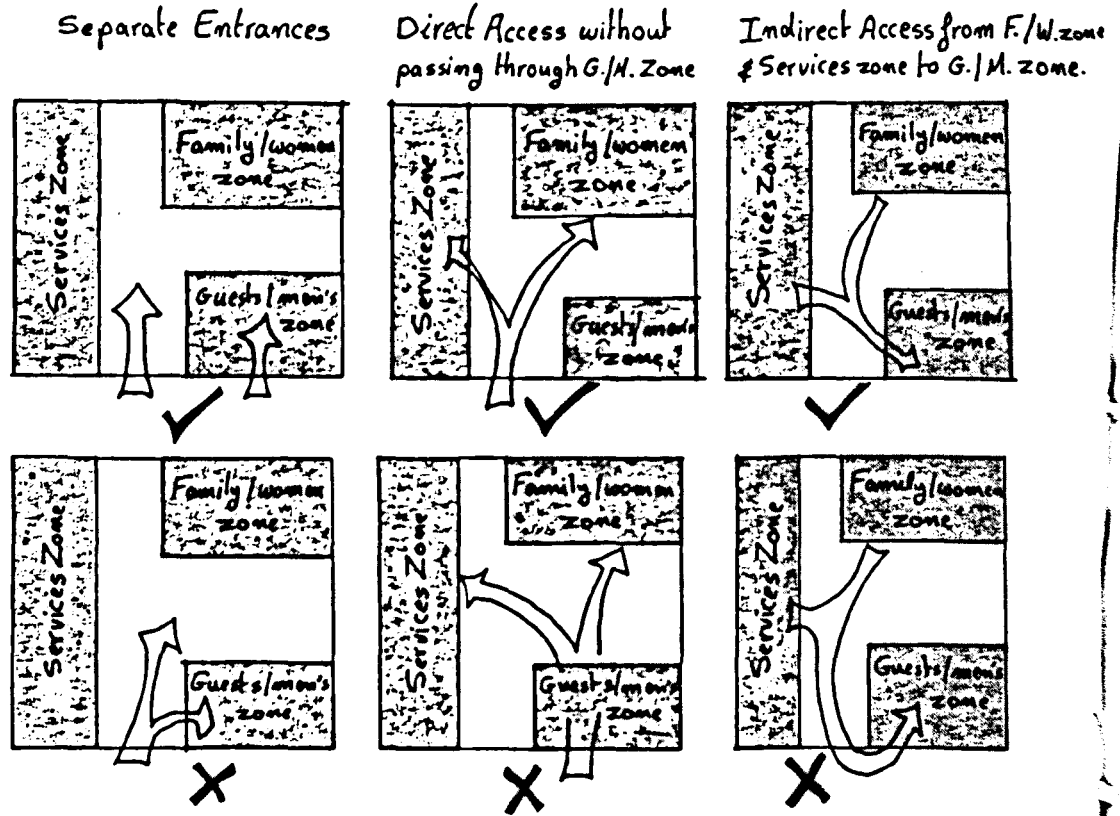 Separate Entrances
Direct Access without
passing through G./M. Zone
Indirect Access from F./W. zone
& Services zone to G./M. zone.
Services Zone
Family/women
zone
Guests/men's
zone
Services Zone
Family/women
zone
Guests/men's
zone
Services Zone
Family/women
zone
Guests/men's
zone
Services Zone
Family/women
zone
Guests/men's
zone
Services Zone
Family/women
zone
Guests/men's
zone
Services Zone
Family/women
zone
Guests/men's
zone